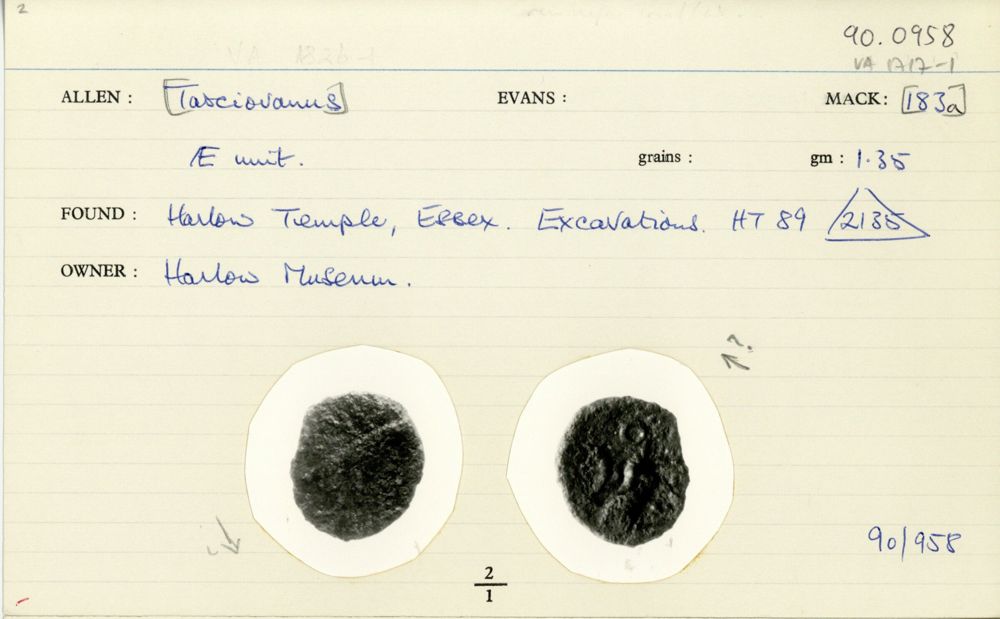 2
90.0958
VA 1826-1 VA 1717-1
ALLEN : [Tasciovanus] EVANS : MACK: [183a]
Æ unit. grains : gm : 1.35
FOUND : Harlow Temple, Essex. Excavations. HT 89 2135
OWNER : Harlow Museum.
?
90/958
2
1